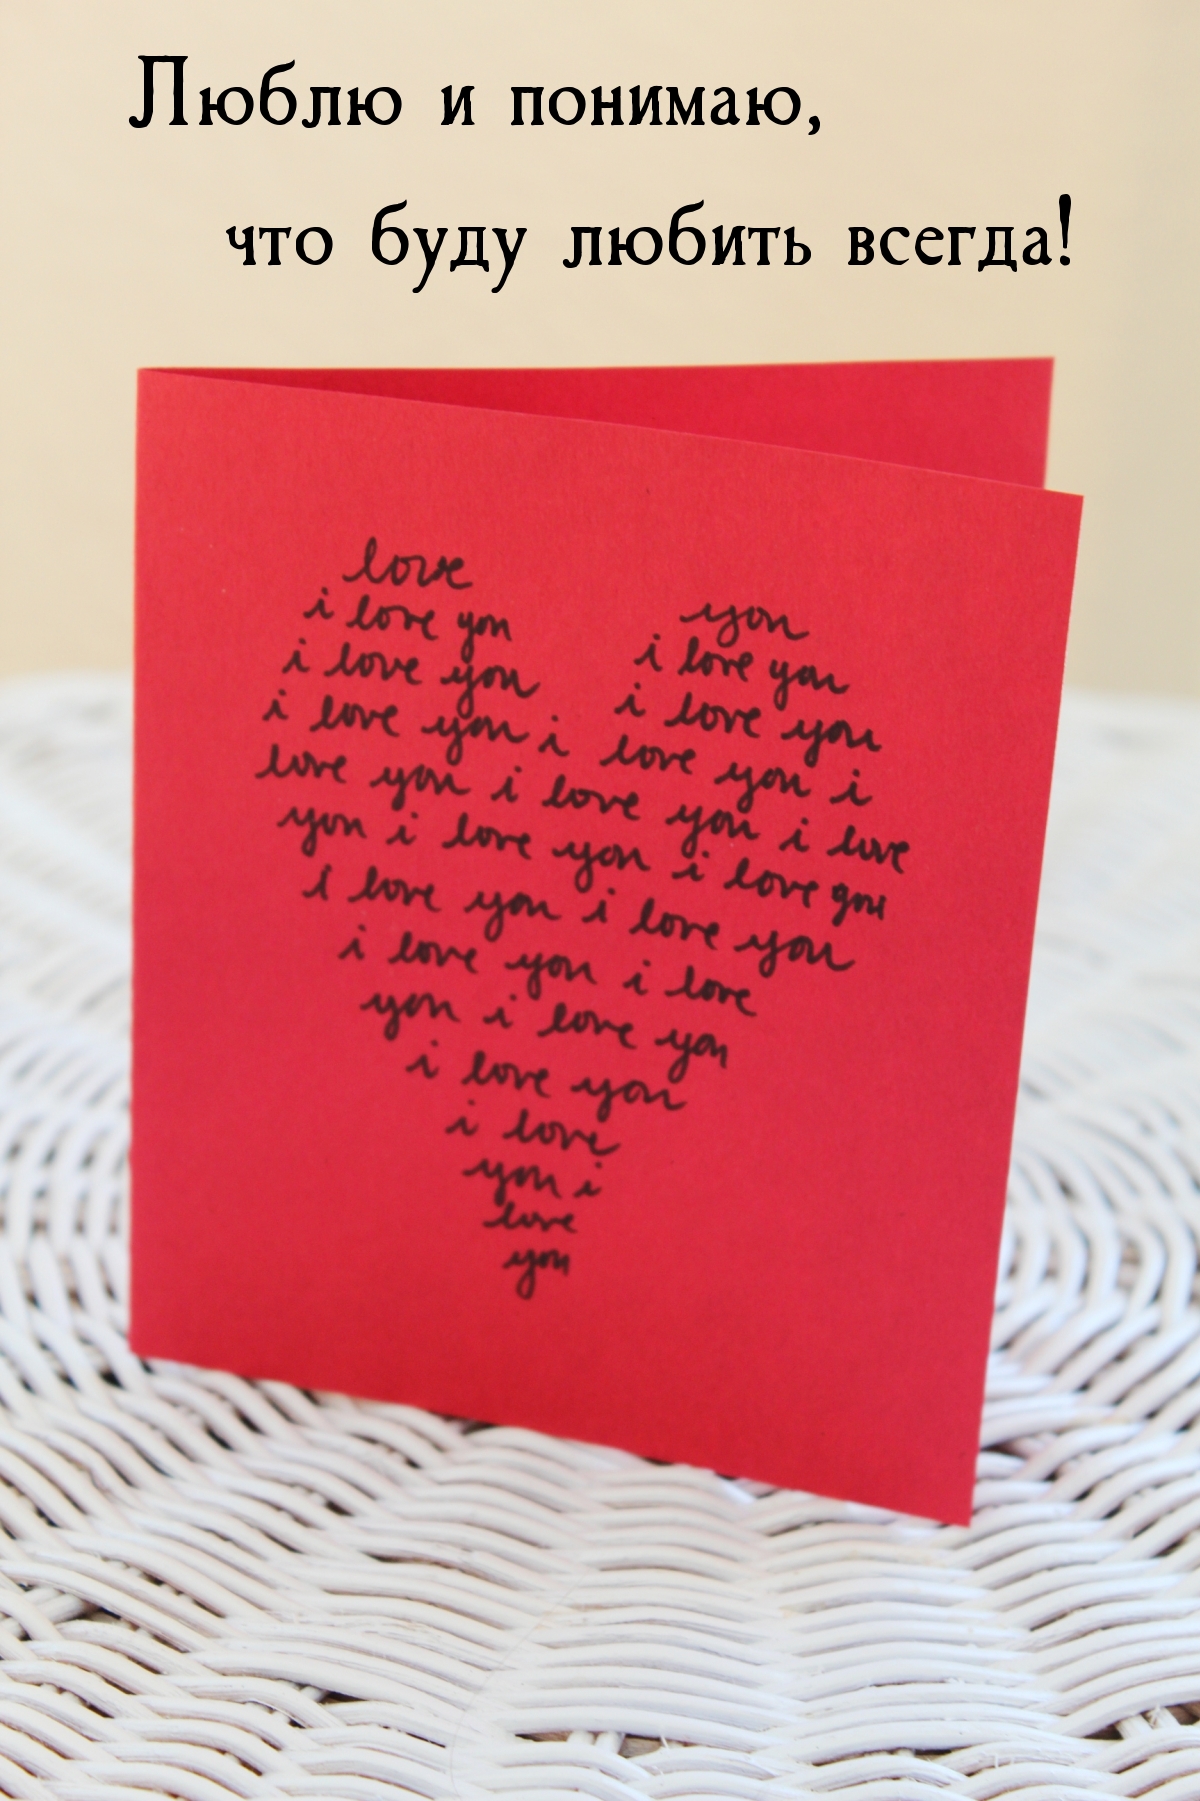 Люблю и понимаю,
что буду любить всегда!
love
you
i love you
i love you
i love you
i love you
i love you i love you i
love you i love you i love
you i love you i love you
I love you i love you
i love you i love
you i love you
i love you
i love
you i
love
you